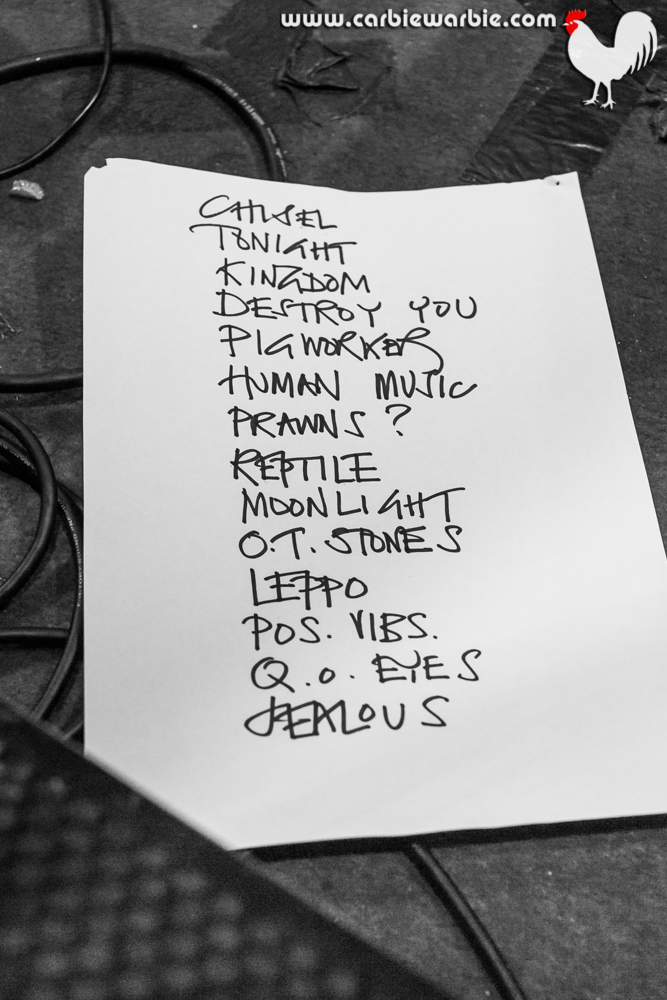 www.carbiewarbie.com
CHISEL
TONIGHT
KINGDOM
DESTROY YOU
PIGWORKER
HUMAN MUSIC
PRAWNS?
REPTILE
MOONLIGHT
O.T. STONES
LEPPO
POS. VIBS.
Q.O. EYES
JEALOUS